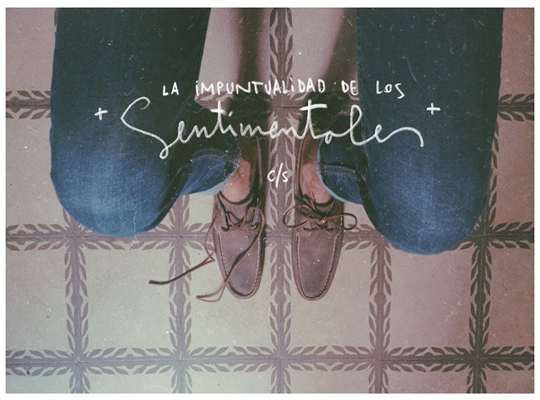 LA iMPUNTUALiDAD DE LOS
+ Sentimentales +
c/s